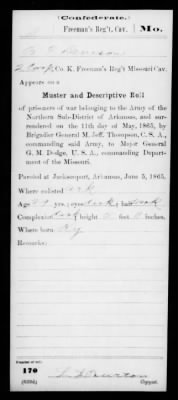 (Confederate.)
Freeman's Reg't, Cav. Mo.
Co. K. Freeman's Reg't Missouri Cav.
Appears on a
Muster and Descriptive Roll
of prisoners of war belonging to the Army of the
Northern Sub-District of Arkansas, and sur-
rendered on the 11th day of May, 1865, by
Brigadier General M. Jeff. Thompson, C. S. A.,
commanding said Army, to Major General
G. M. Dodge, U. S. A., commanding Depart-
ment of the Missouri.
Paroled at Jacksonport, Arkansas, June 5, 1865.
Where enlisted Ark
Age yrs; eyes dark; hair dark
Complexion dark; height feet inches.
Where born Ky
Remarks:
Number of roll:
170
(639d) Copyist.